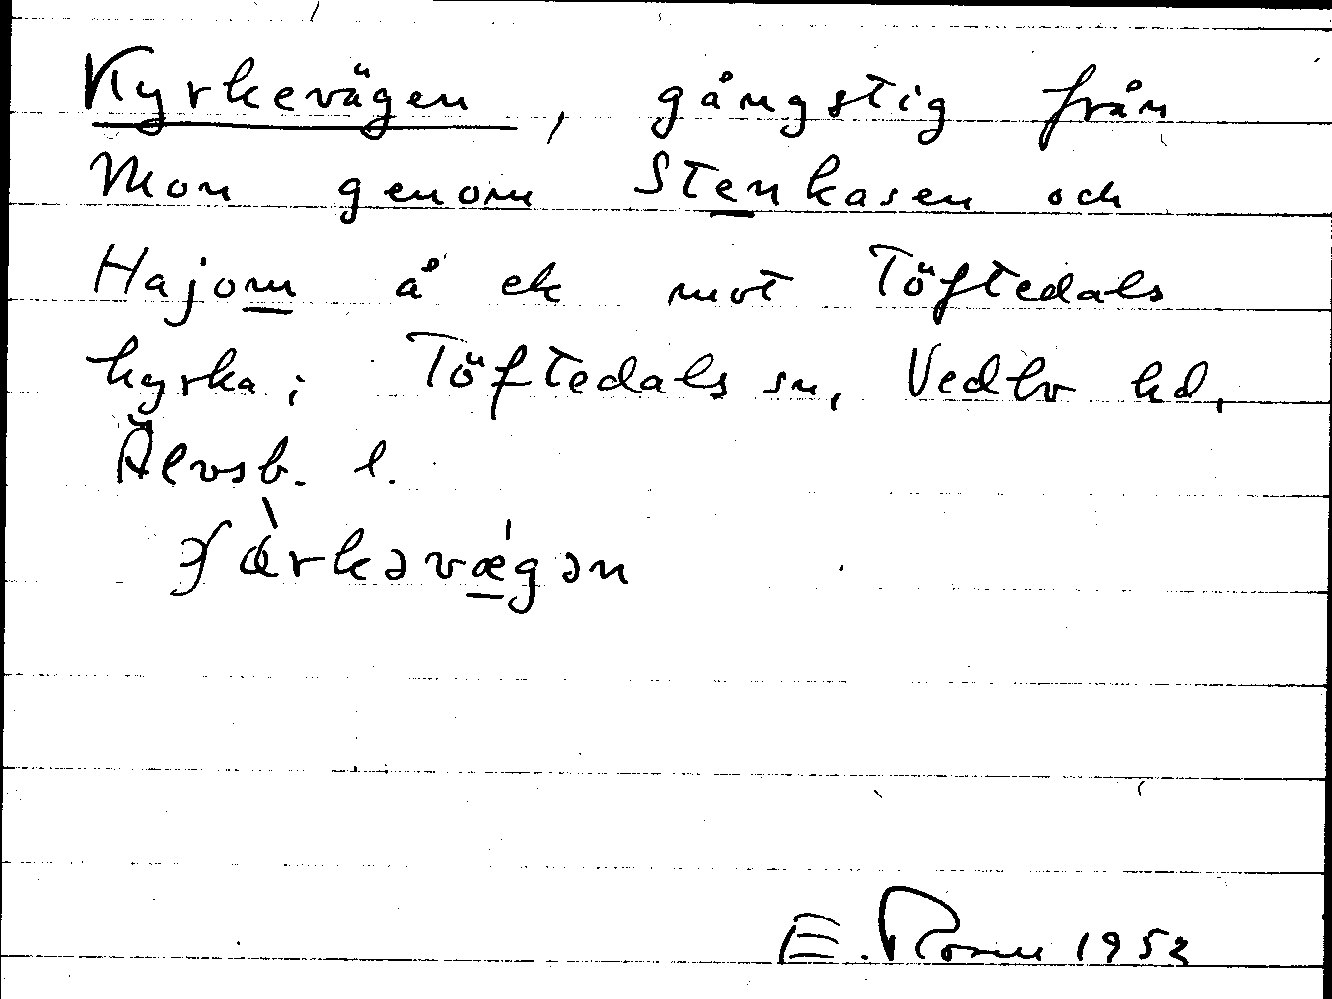 Kyrkevägen, gångstig från
Mon genom Stenkasen och
Hajom å ek mot Töftedals
kyrka; Töftedals sn, Vedbo hd,
Älvsb. l.
E. Rosen 1952